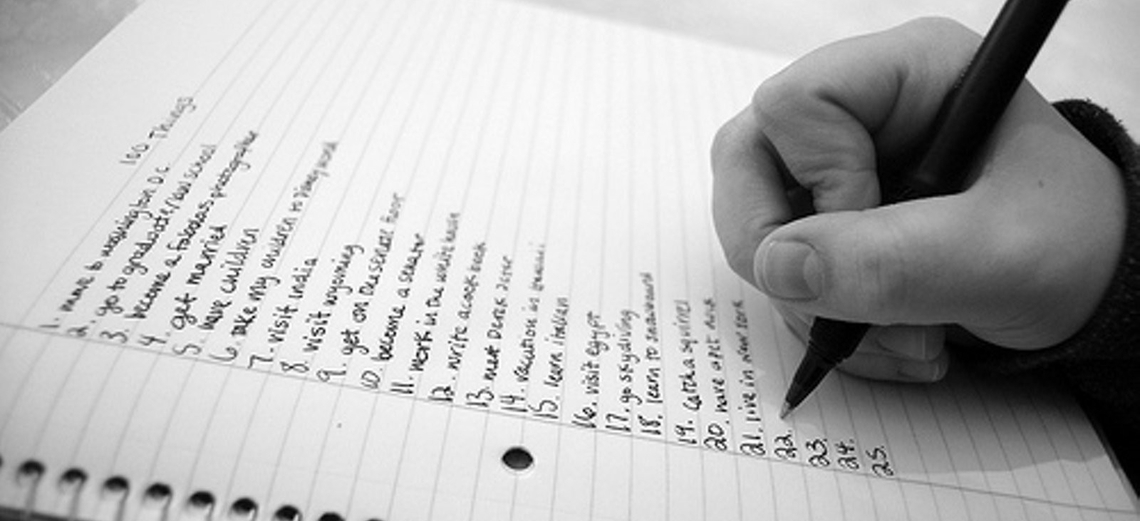 100 Things
1. move to washington D.C.
2. go to graduate/law school
3. become a fabulous photographer
4. get married
5. have children
6. take my children to Disney World
7. visit India
8. visit wyoming
9. get on the senate floor
10. become a senator
11. work in the white house
12. write a cook book
13. meet Derek Jeter
14. vacation in
15. learn italian
16. visit egypt
17. go skydiving
18. learn to snowboard
19. catch a squirrel
20. have a pet
21. live in New York
22.
23.
24.
25.